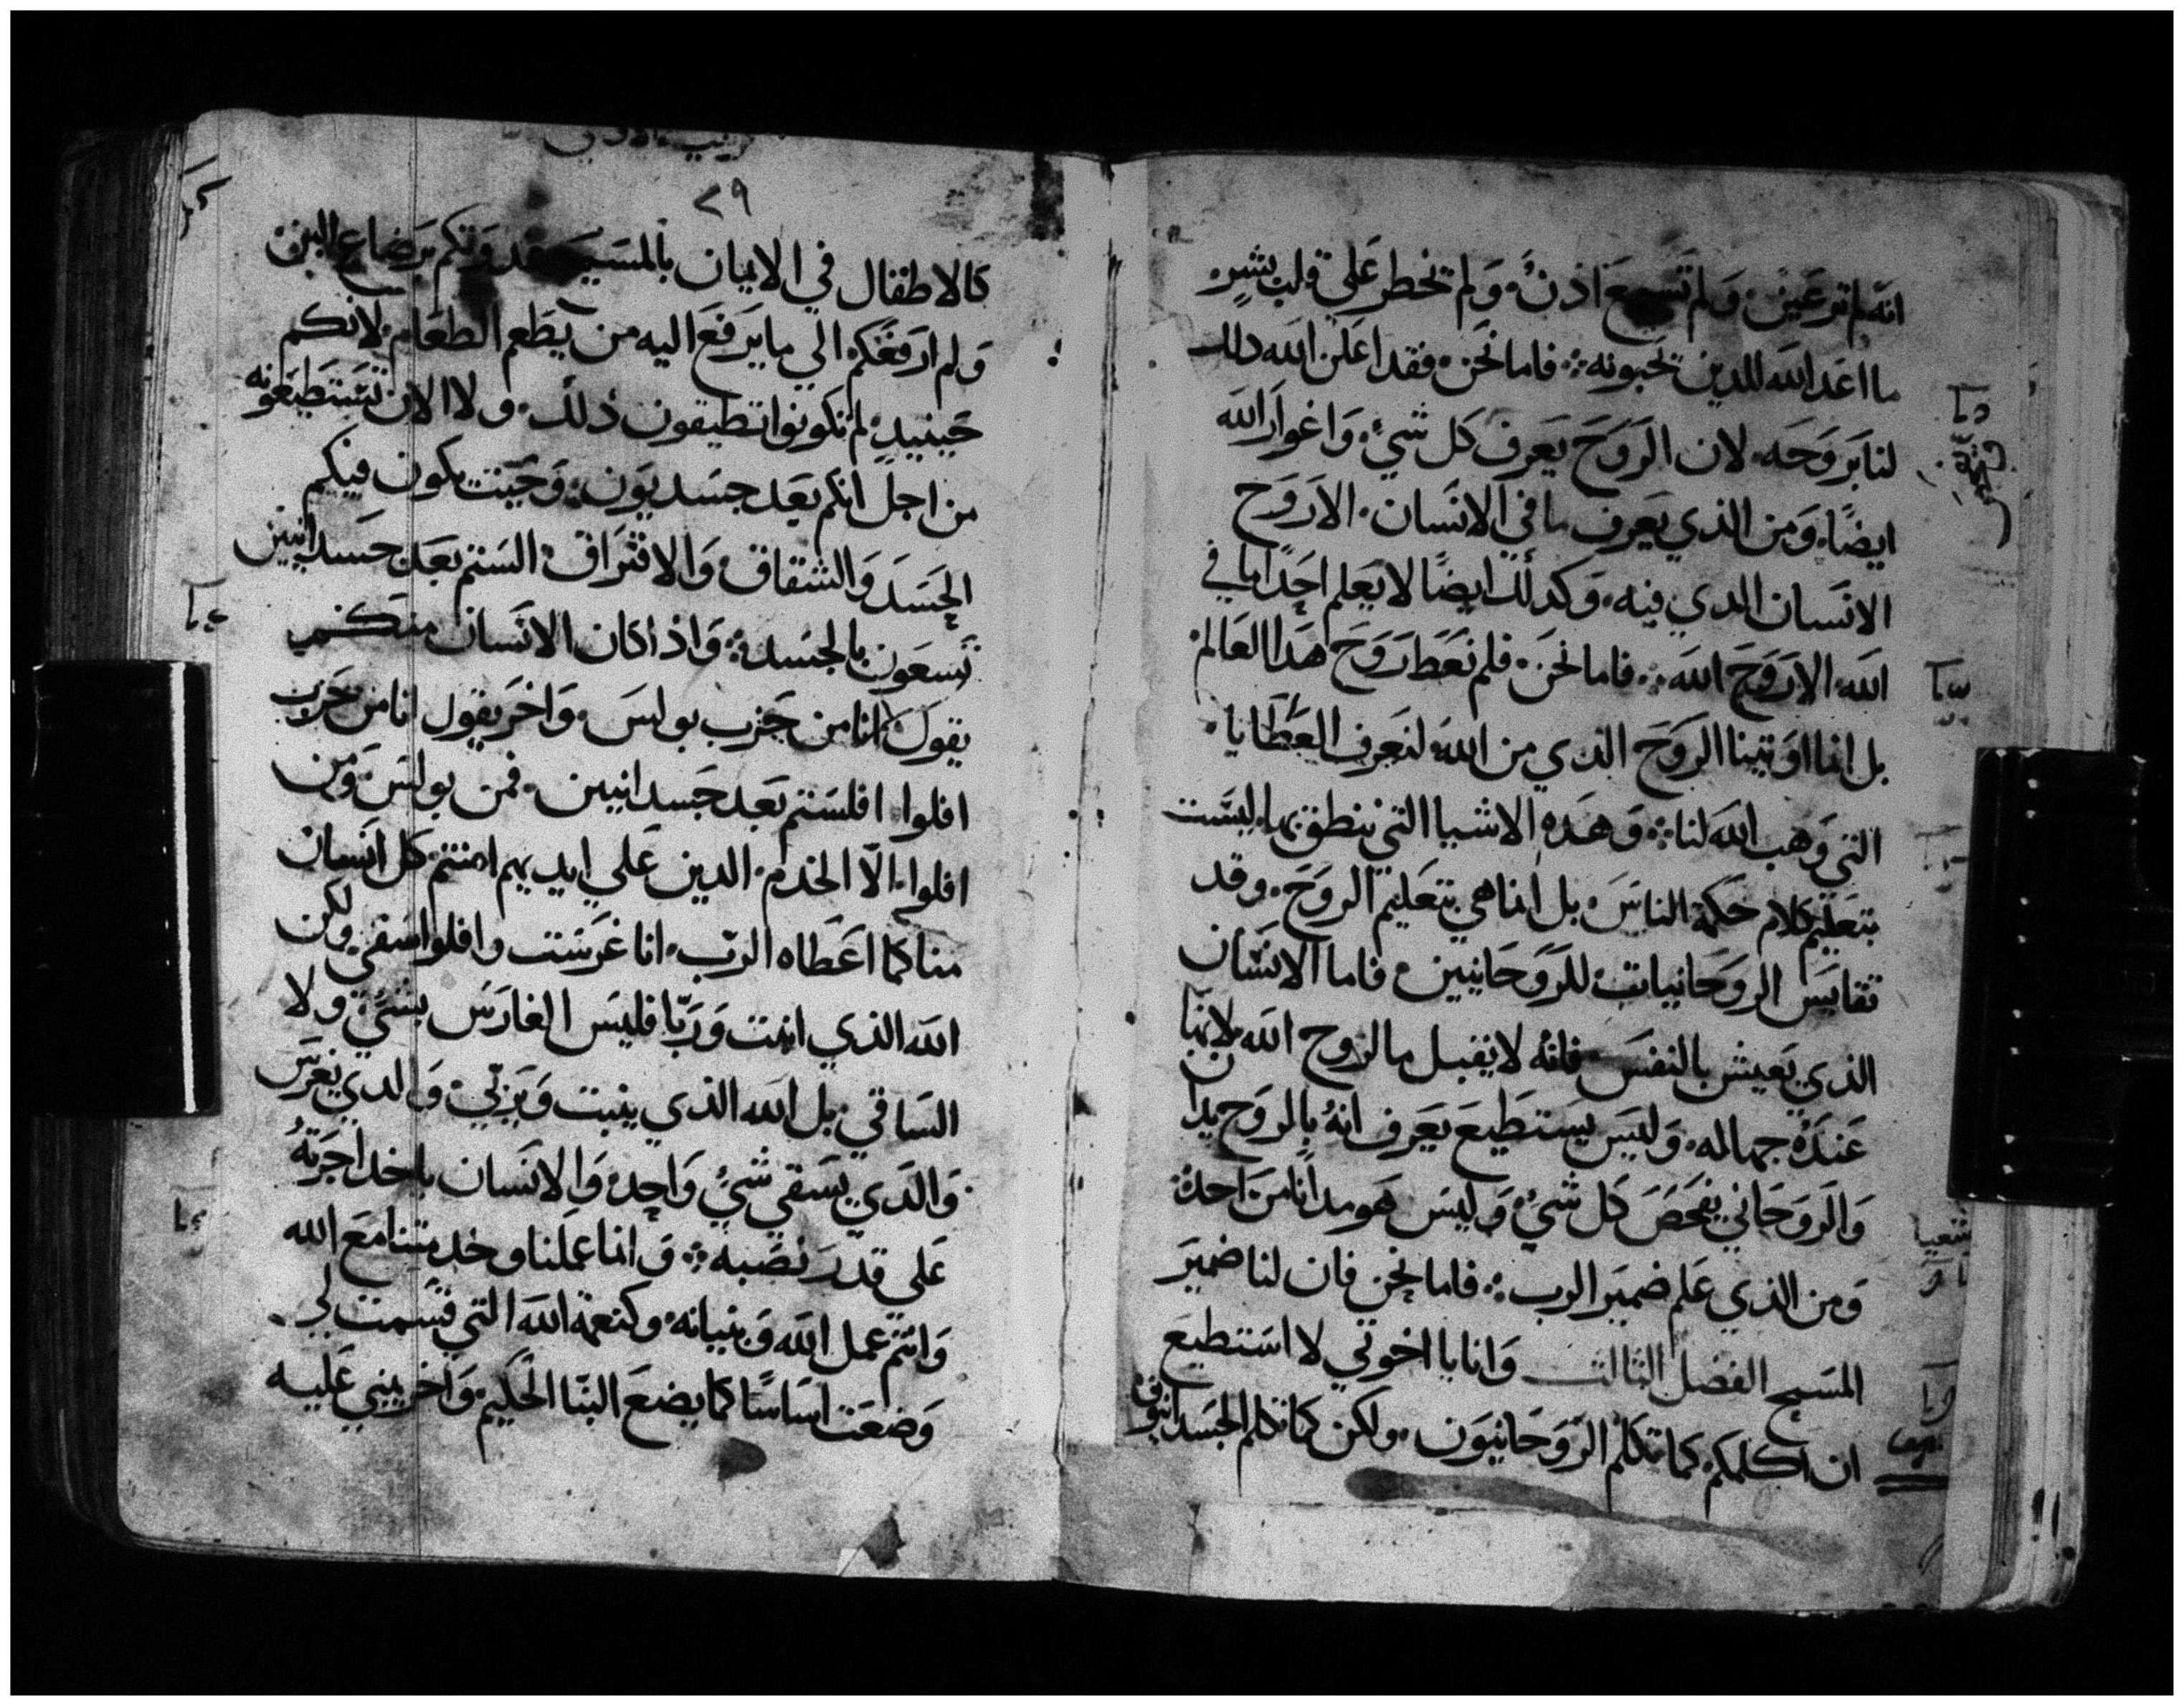 انه لم تر عين، ولم تسمع اذن، ولم تخطر علي قلب بشر
ما اعد الله للدين تحبونه؞ فاما نحن فقد اعلن الله دلك
لنا بروحه، لان الروح يعرف كل شيء، واغوار الله
ايضًا، ومن الذي يعرف ما في الانسان، الا روح
الانسان الدي فيه، وكدلك ايضًا لا يعلم احدًا ما في
الله، الا روح الله؞ فاما نحن، فلم نعط روح هدا العالم
بل انما اوتينا الروح الذي من الله لنعرف العطايا
التي وهب الله لنا؞ وهده الاشيا التي ننطق بها ليست
بتعليم كلام حكمة الناس، بل انما هي بتعليم الروح، وقد
تقايس الروحانيات للروحانيين، فاما الانسان
الذي يعيش بالنفس فانه لا يقبل ما لروح الله لانها
عنده جهاله، وليس يستطيع يعرف انه بالروح يدان
والروحاني يفحص كل شيء، وليس هو مدانا من احد؞
ومن الذي علم ضمير الرب؞ فاما نحن فان لنا ضمير
المسيح الفصل الثالث وانا يا اخوتي لا استطيع
ان اكلمكم كما تكلم الروحانيون، ولكن كما تكلم الجسدانيون
شعيا
٢٩
كالاطفال في الايمان بالمسيح غدوتكم برضاع البن
ولم ارفعكم الي ما يرفع اليه من يطعم الطعام، لانكم
حينيد، لم تكونوا تطيقون ذلك، ولا الان تستطيعونه
من اجل انكم بعد جسديون، وحيت يكون فيكم
الحسد والشقاق، والافتراق، الستم بعد جسدانيين
تسعون بالجسد؞ واذا كان الانسان منكم
يقول انا من حزب بولس، واخر يقول انا من حزب
افلوا، افلستم بعد جسدانيين، فمن بولس ومن
افلوا، الّا الخدم، الدين علي ايديهم امنتم، كل انسان
منا كما اعطاه الرب، انا غرست وافلوا سقي ولكن
الله الذي انبت وربّا فليس الغارس بشيء، ولا
الساقي بل الله الذي ينبت ويربي، والدي يغرس
والدي يسقي شيء واحد، والانسان ياخد اجرته
علي قدر نصبه؞ وانما عملنا وخدمتنا مع الله
وانتم عمل الله وبنيانه، وكنعمة الله التي قسمت لي
وضعت اساسًا كما يضع البنّا الحكيم، واخر يبني عليه